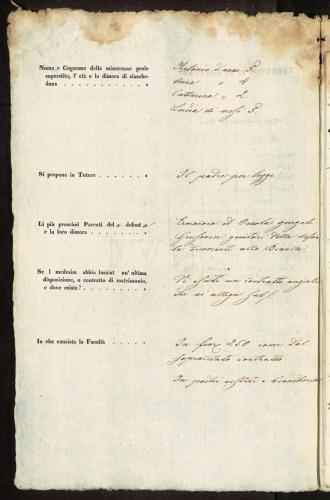 Nome e Cognome della minorenne prole
superstite, l' età e la dimora di ciasche-
duno
Antonio d'anni 8
Anna " 4
Cattarina " 2
Lucia di mesi 8
Si propone in Tutore
Il padre per legge
Li più prossimi Parenti del defont
e la loro dimora
ed Orsola giugali
genitori della defon
dimoranti alla
Se l medesim abbia lasciat un' ultima
disposizione, o contratto di matrimonio,
e dove esista?
Vi esiste un contratto nuziale
che si allega sub
In che consista la Facoltà
In fior 250 come dal
sopracitato contratto
In pochi vestiti e biancheria